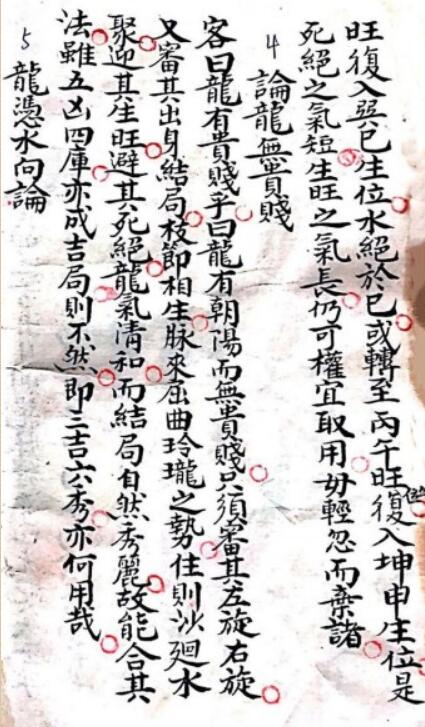 旺復入巽巳生位水絕於巳或轉至丙午旺位復入坤申生位是
死絕之氣短生旺之氣長仍可權宜取用毋輕忽而棄諸
4 論龍無貴賤
客曰龍有貴賤乎曰龍有朝陽而無貴賤只須審其左旋右旋
又審其出身結局枝節相生脉來屈曲玲瓏之勢住則沙廻水
聚迎其生旺避其死絕龍氣清和而結局自然秀麗故能合其
法雖五凶四庫亦成吉局則不然即三吉六秀亦何用哉
5 龍憑水向論